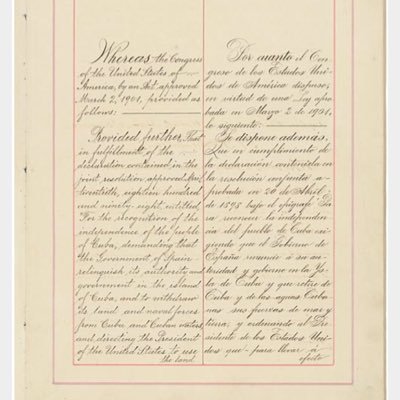 Whereas the Congress
of the United States of
America, by an Act approved
March 2, 1901, provided as
follows:
Provided further, That
in fulfillment of the
declaration contained in the
joint resolution approved April
twentieth, eighteen hundred
and ninety-eight, entitled
"For the recognition of the
independence of the people
of Cuba, demanding that
the Government of Spain
relinquish its authority and
government in the island
of Cuba, and to withdraw
its land and naval forces
from Cuba and Cuban waters,
and directing the President
of the United States to use
the land
Por cuanto el Con-
greso de los Estados Uni-
dos de América dispuso,
en virtud de una Ley apro-
bada en Marzo 2 de 1901,
lo siguiente:
Se dispone además,
Que en cumplimiento de
la declaración contenida en
la resolución conjunta a-
probada en 20 de Abril
de 1898 bajo el epígrafe "Pa-
ra reconocer la independen-
cia del pueblo de Cuba exi-
giendo que el Gobierno de
España renuncie á su au-
toridad y gobierno en la Ys-
la de Cuba y que retire de
Cuba y de las aguas Cuba-
nas sus fuerzas de mar y
tierra, y ordenando al Pre-
sidente de los Estados Uni-
dos que para llevar á
efecto